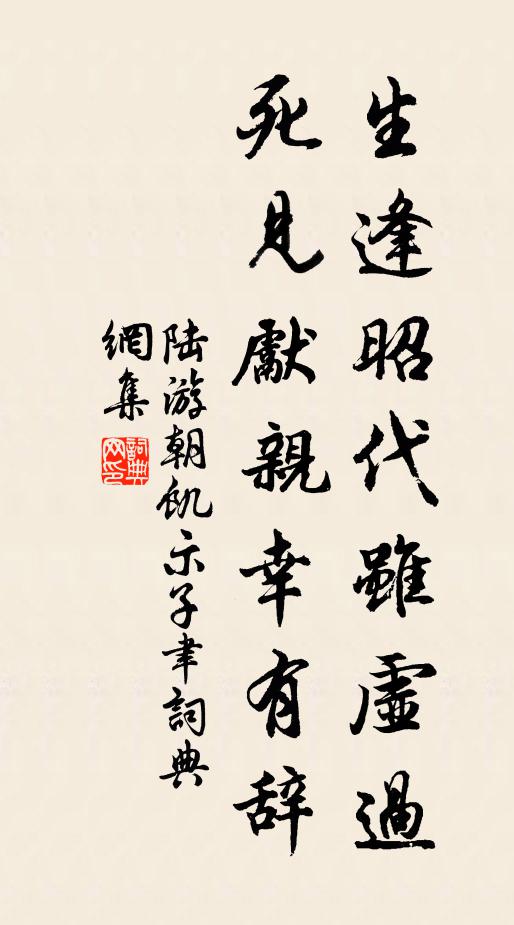 生逢昭代雖虛過
死見獻親幸有辞
陆游朝飢示子聿詞典
網集
詞典
网印